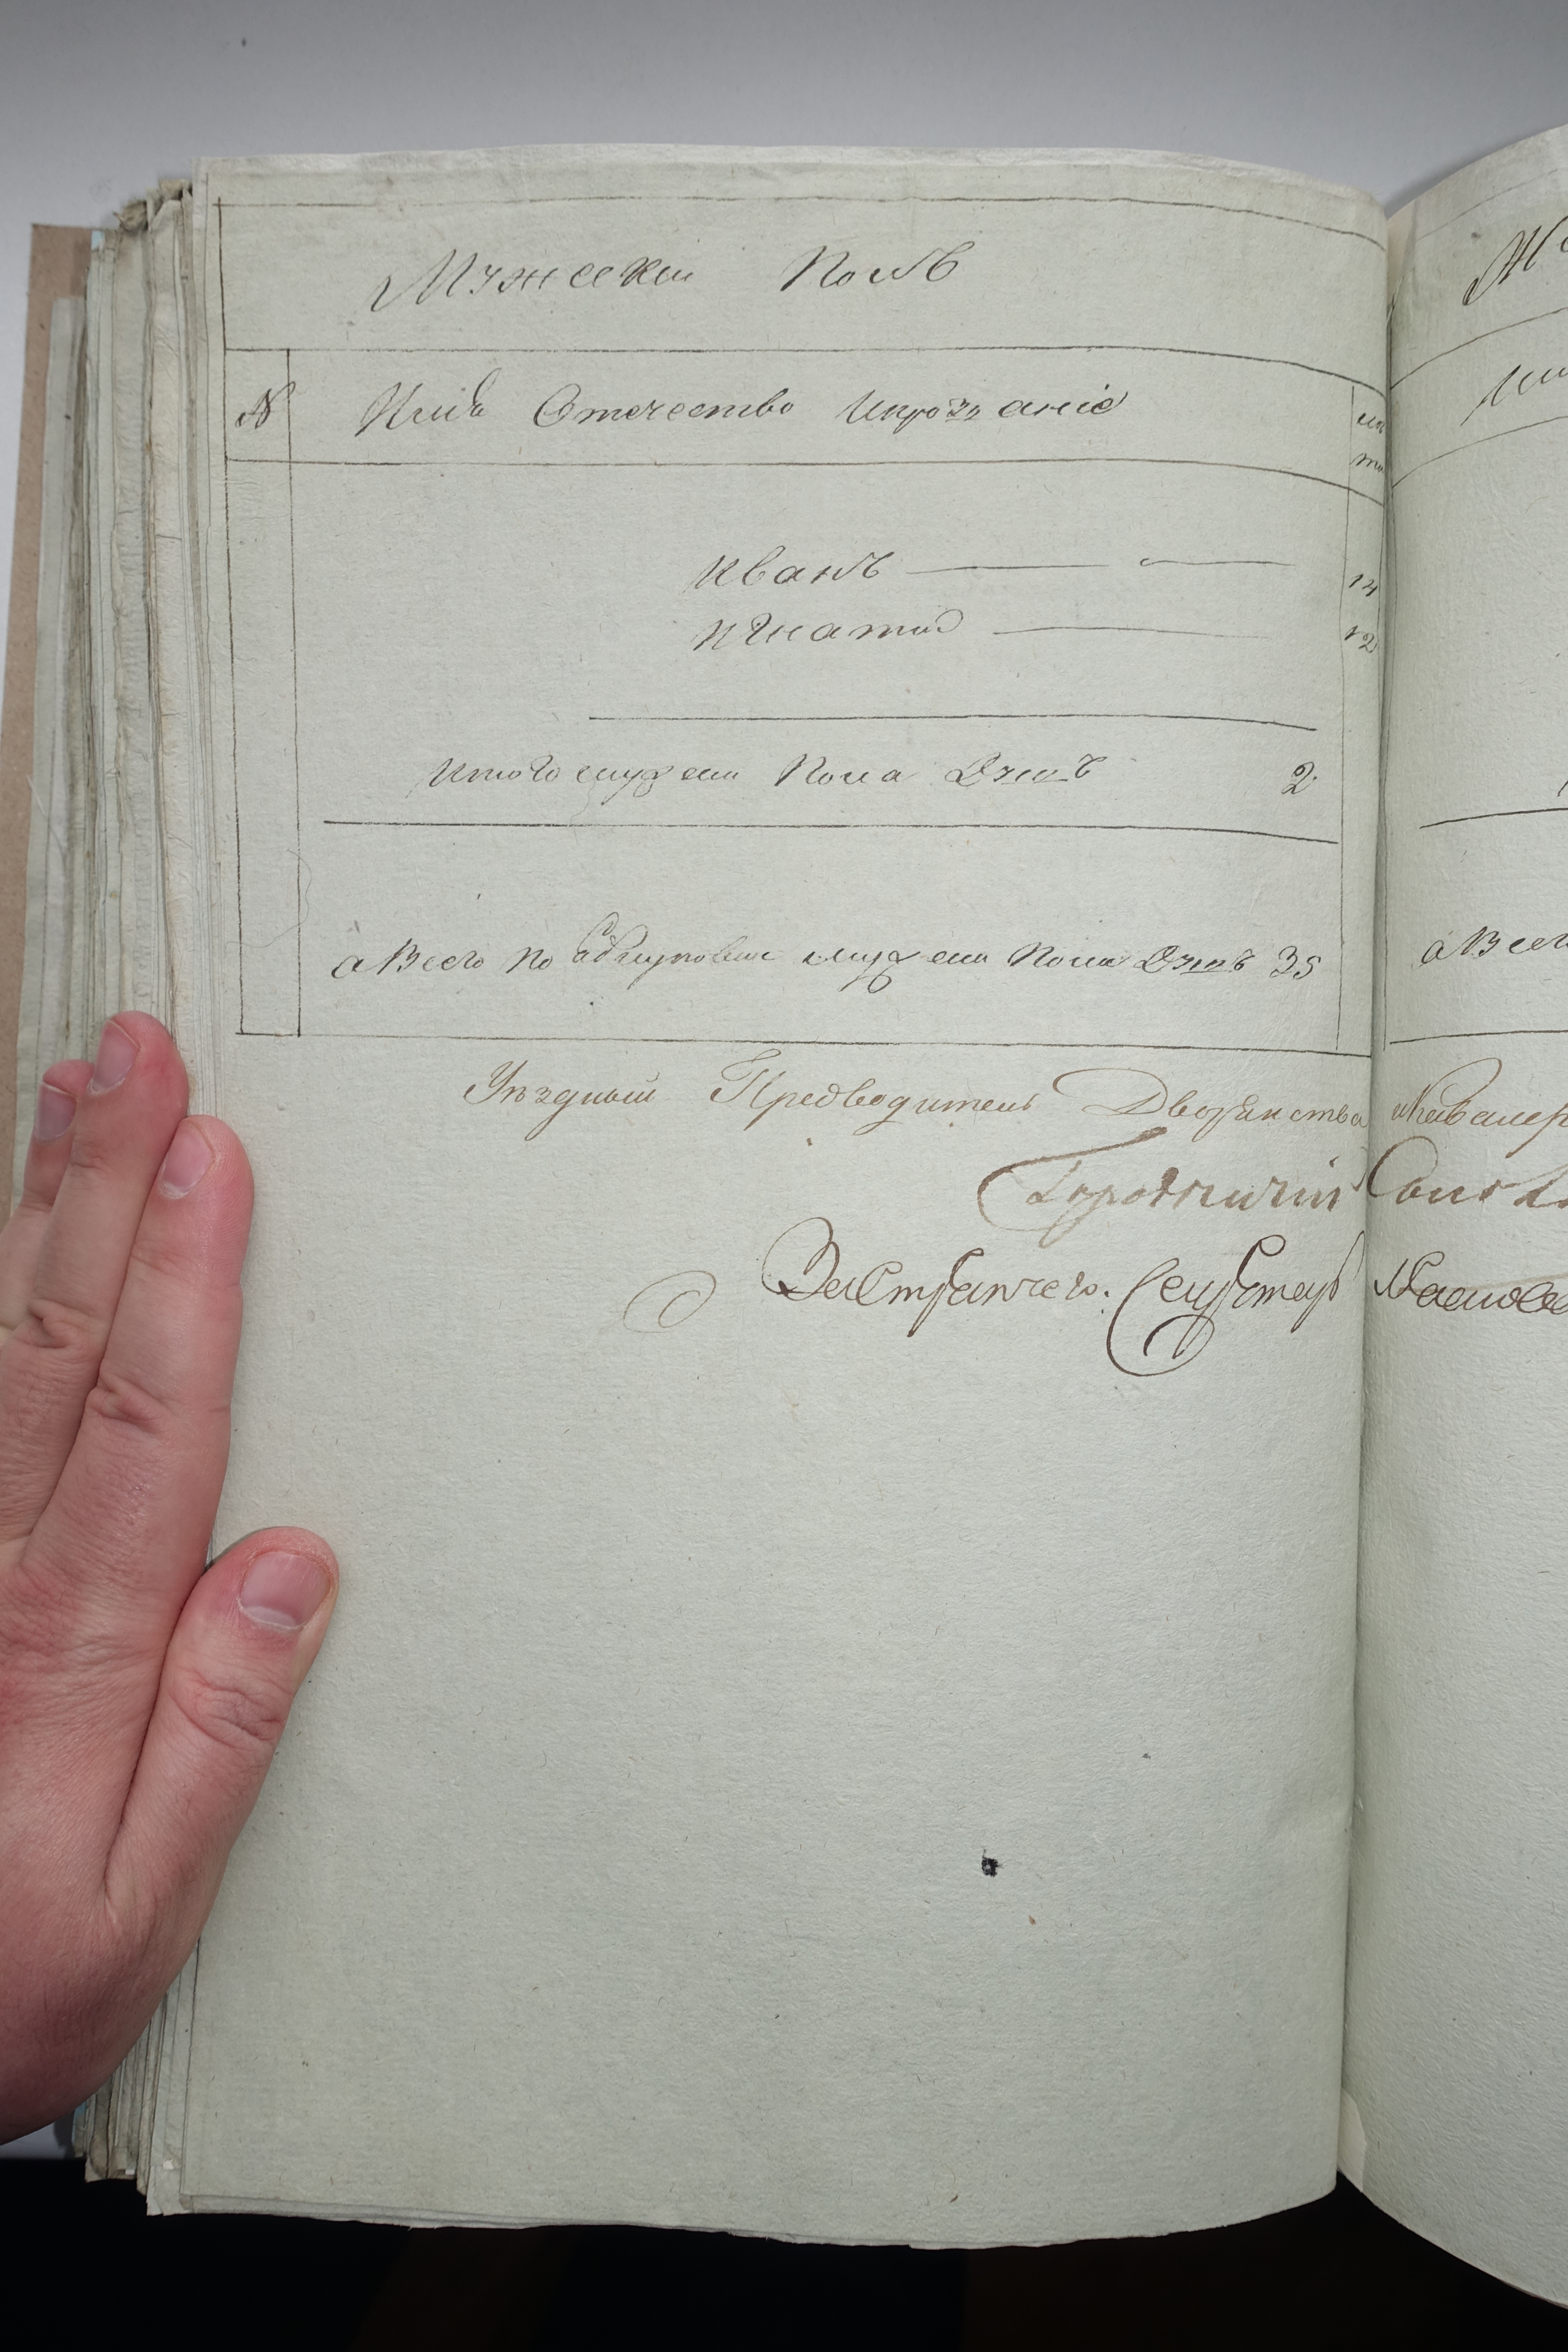 Мужески Полъ
N Имя Отечество Ипрозваніе
Иванъ 14
Игнатий 12
Итого мужеска Пола Душъ 2
а Всего по мужеска Пола Душъ 35
а Всего
Уѣздный Предводитель Дворянства икавалеръ
Городничій
За Стряпчего: Секретарь